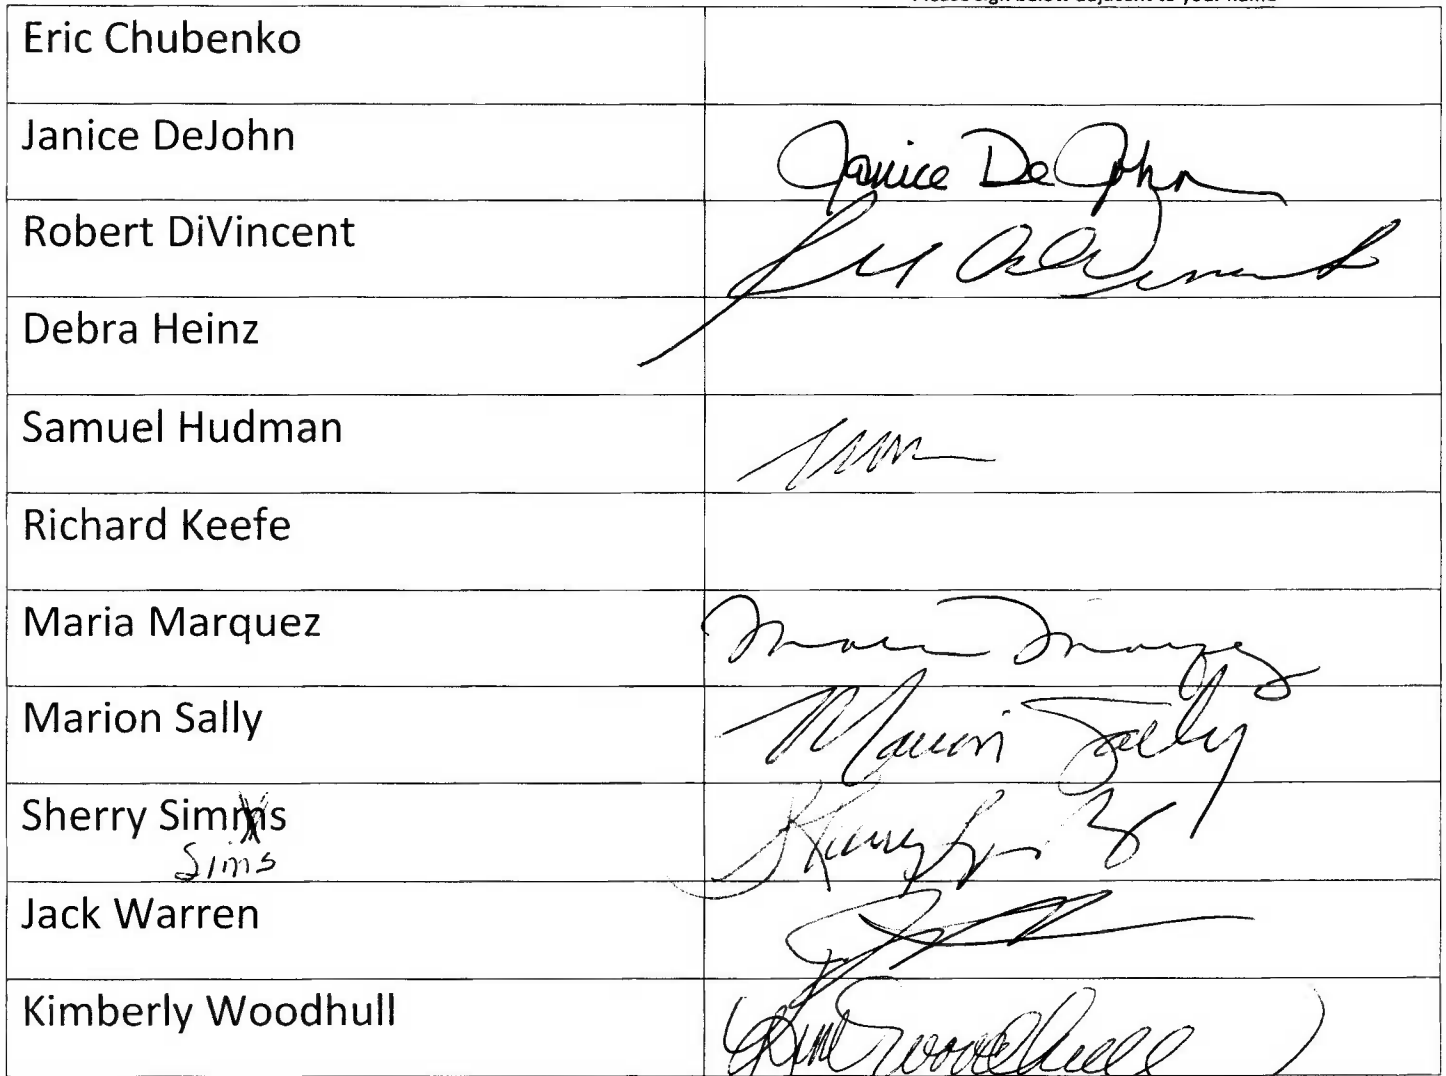 Please sign below adjacent to your name
Eric Chubenko
Janice DeJohn Janice DeJohn
Robert DiVincent
Debra Heinz
Samuel Hudman
Richard Keefe
Maria Marquez Maria Marquez
Marion Sally Marion Sally
Sherry Simms
Sims
Jack Warren
Kimberly Woodhull Kim Woodhull